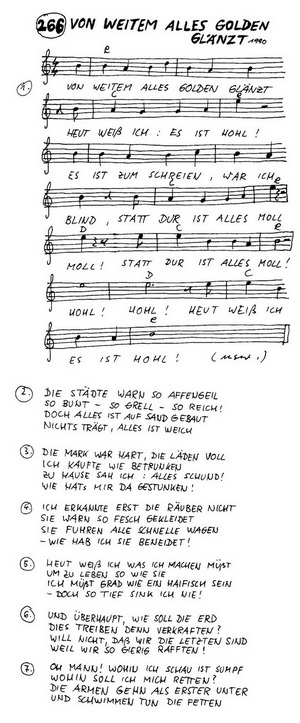 266 VON WEITEM ALLES GOLDEN
GLÄNZT 1990
e
1. VON WEITEM ALLES GOLDEN GLÄNZT
C e
HEUT WEIß ICH : ES IST HOHL !
ES IST ZUM SCHREIEN, WAR ICH
C e
BLIND, STATT DUR IST ALLES MOLL
D C e
MOLL! STATT DUR IST ALLES MOLL!
D C
HOHL! HOHL! HEUT WEIß ICH
e
ES IST HOHL! (usw.)
2. DIE STÄDTE WARN SO AFFENGEIL
SO BUNT - SO GRELL - SO REICH!
DOCH ALLES IST AUF SAND GEBAUT
NICHTS TRÄGT, ALLES IST WEICH
3. DIE MARK WAR HART, DIE LÄDEN VOLL
ICH KAUFTE WIE BETRUNKEN
ZU HAUSE SAH ICH : ALLES SCHUND!
WIE HATS MIR DA GESTUNKEN!
4. ICH ERKANNTE ERST DIE RÄUBER NICHT
SIE WARN SO FESCH GEKLEIDET
SIE FUHREN ALLE SCHNELLE WAGEN
- WIE HAB ICH SIE BENEIDET!
5. HEUT WEIß ICH WAS ICH MACHEN MÜßT
UM ZU LEBEN SO WIE SIE
ICH MÜßT GRAD WIE EIN HAIFISCH SEIN
- DOCH SO TIEF SINK ICH NIE!
6. UND ÜBERHAUPT, WIE SOLL DIE ERD
DIES TREIBEN DENN VERKRAFTEN?
WILL NICHT, DAß WIR DIE LETZTEN SIND
WEIL WIR SO GIERIG RAFFTEN!
7. OH MANN! WOHIN ICH SCHAU IST SUMPF
WOHIN SOLL ICH MICH RETTEN?
DIE ARMEN GEHN ALS ERSTER UNTER
UND SCHWIMMEN TUN DIE FETTEN